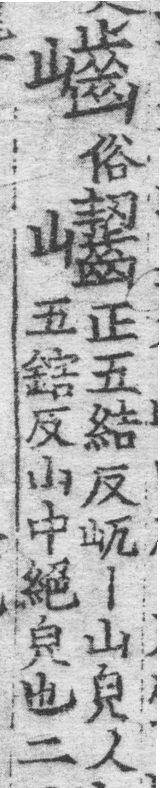 俗
正五結反屼丨山皃又
五鎋反山中絕皃也二